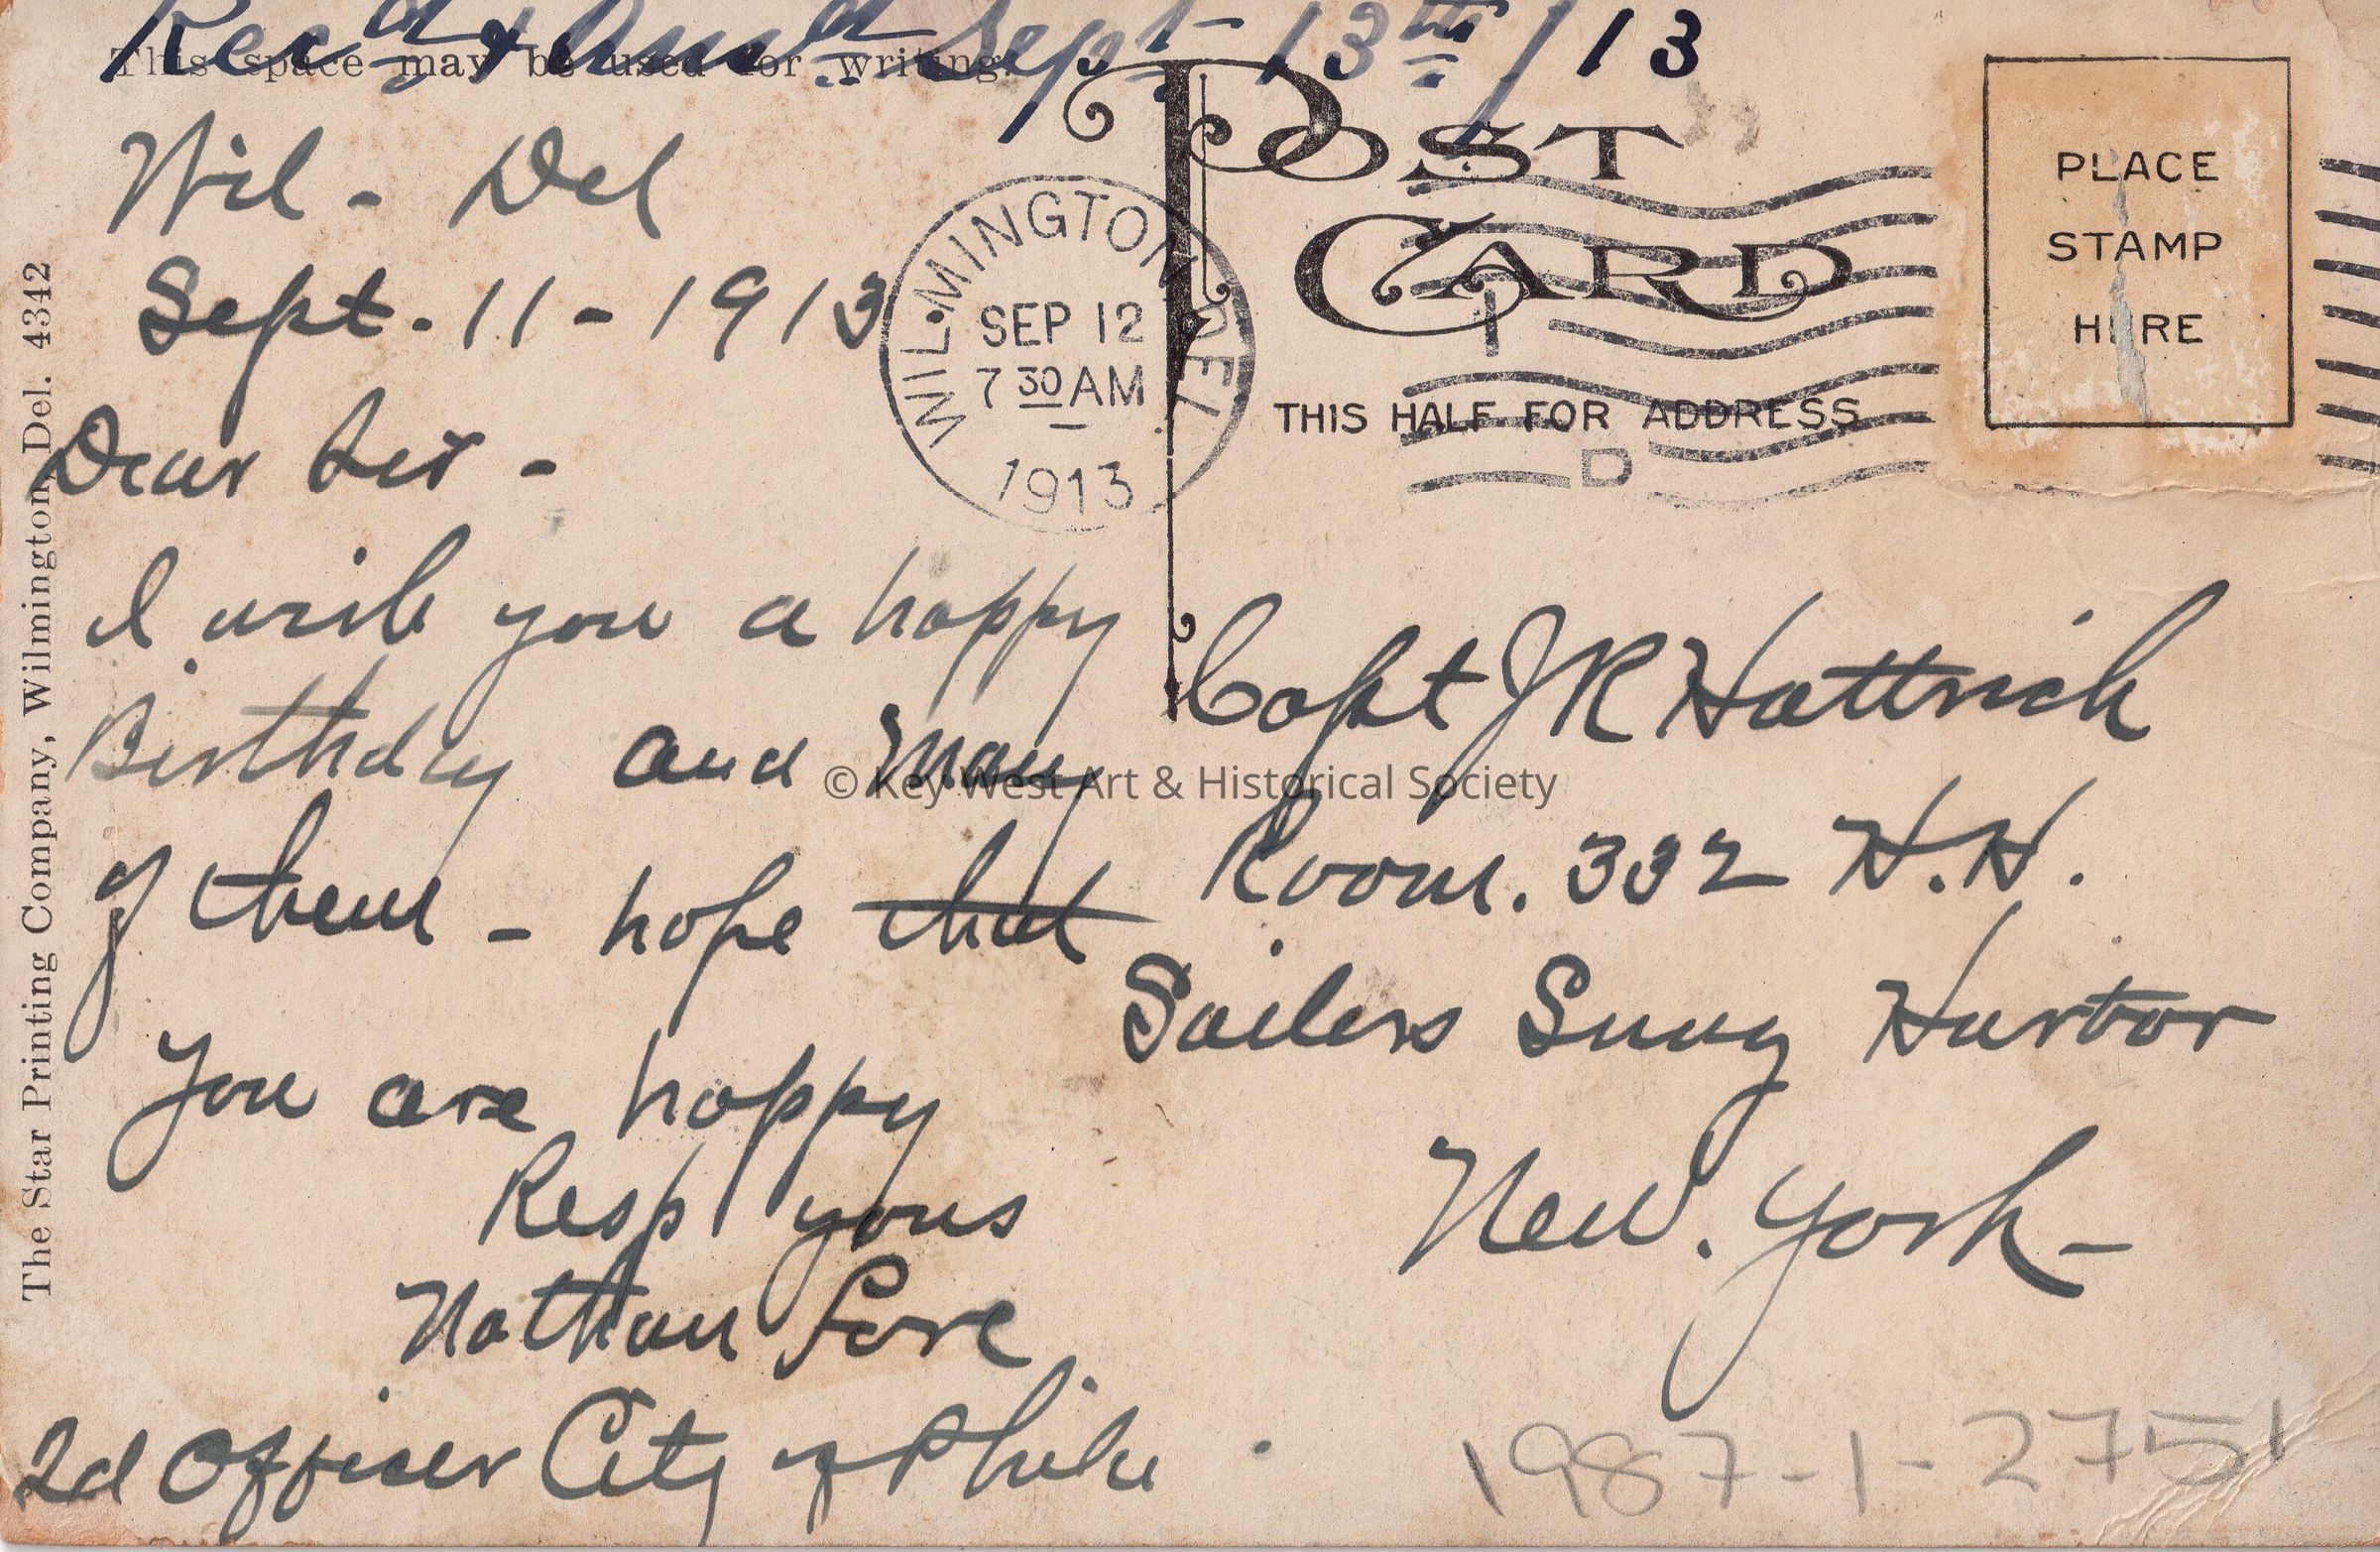 Recd & Ansd Sept 13th/13
This space may be used for writing.
Wil - Del
Sept. 11 - 1913
Dear Sir -
I wish you a happy
Birthday and Many
of them - hope that
you are happy
Resp yours
Nathan
2d Officer City of Phila
The Star Printing Company, Wilmington, Del. 4342
WILMINGTON DEL
SEP 12
7 30 AM
1913
POST
CARD
THIS HALF FOR ADDRESS
D
PLACE
STAMP
HERE
Capt J R Hattrick
Room. 332 H.H.
Sailers Snug Harbor
New. York -
1987-1-2751
© Key West Art & Historical Society